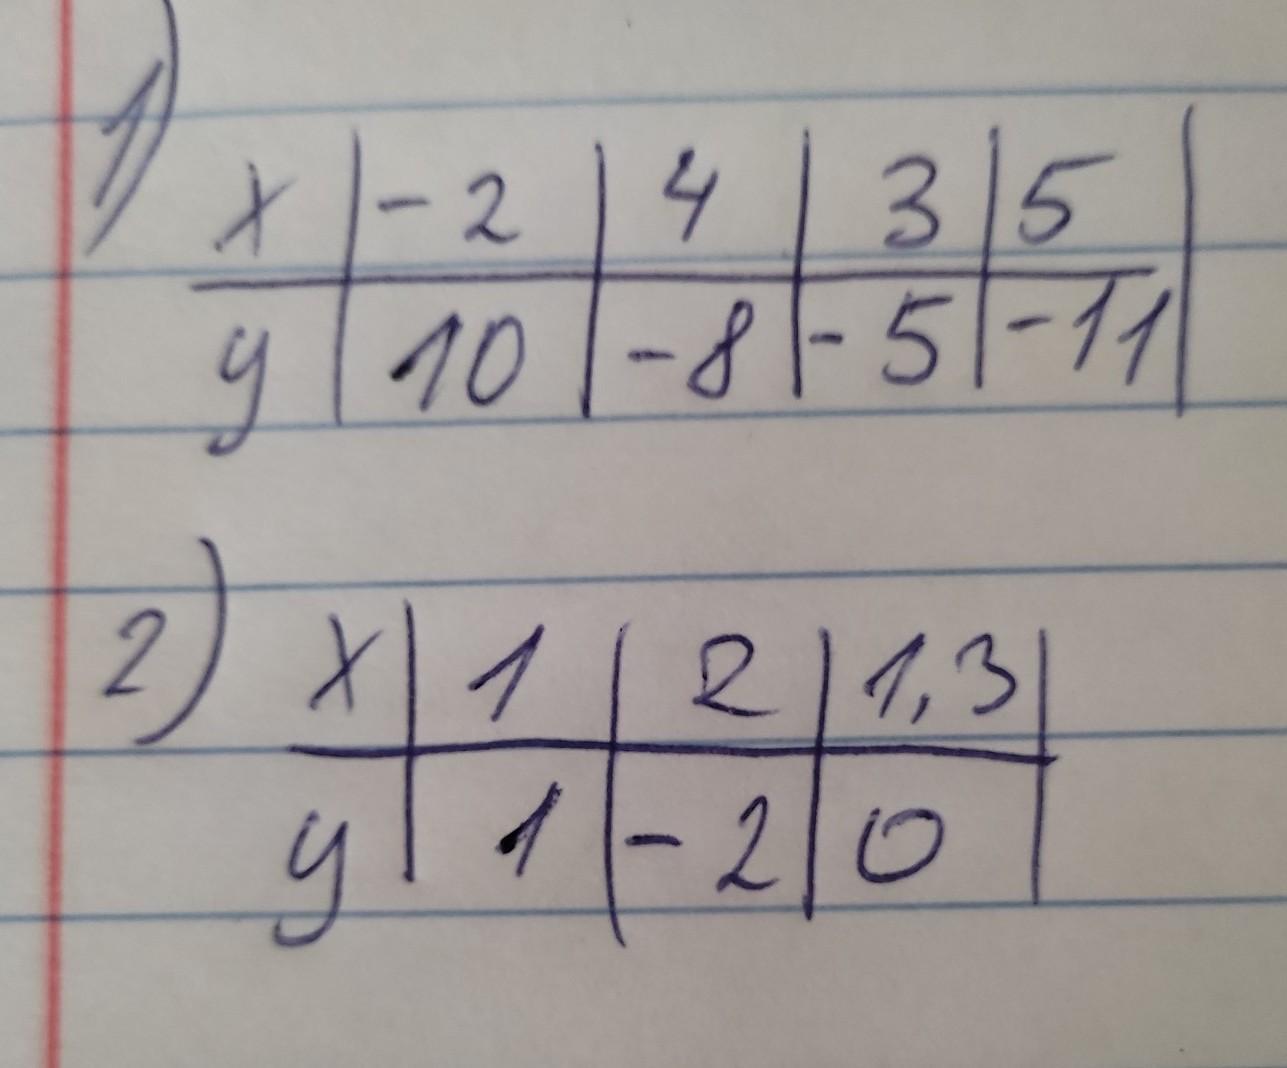 1)
x | -2 | 4 | 3 | 5 |
y | 10 | -8 | -5 | -11 |
2) x | 1 | 2 | 1,3 |
y | 1 | -2 | 0 |